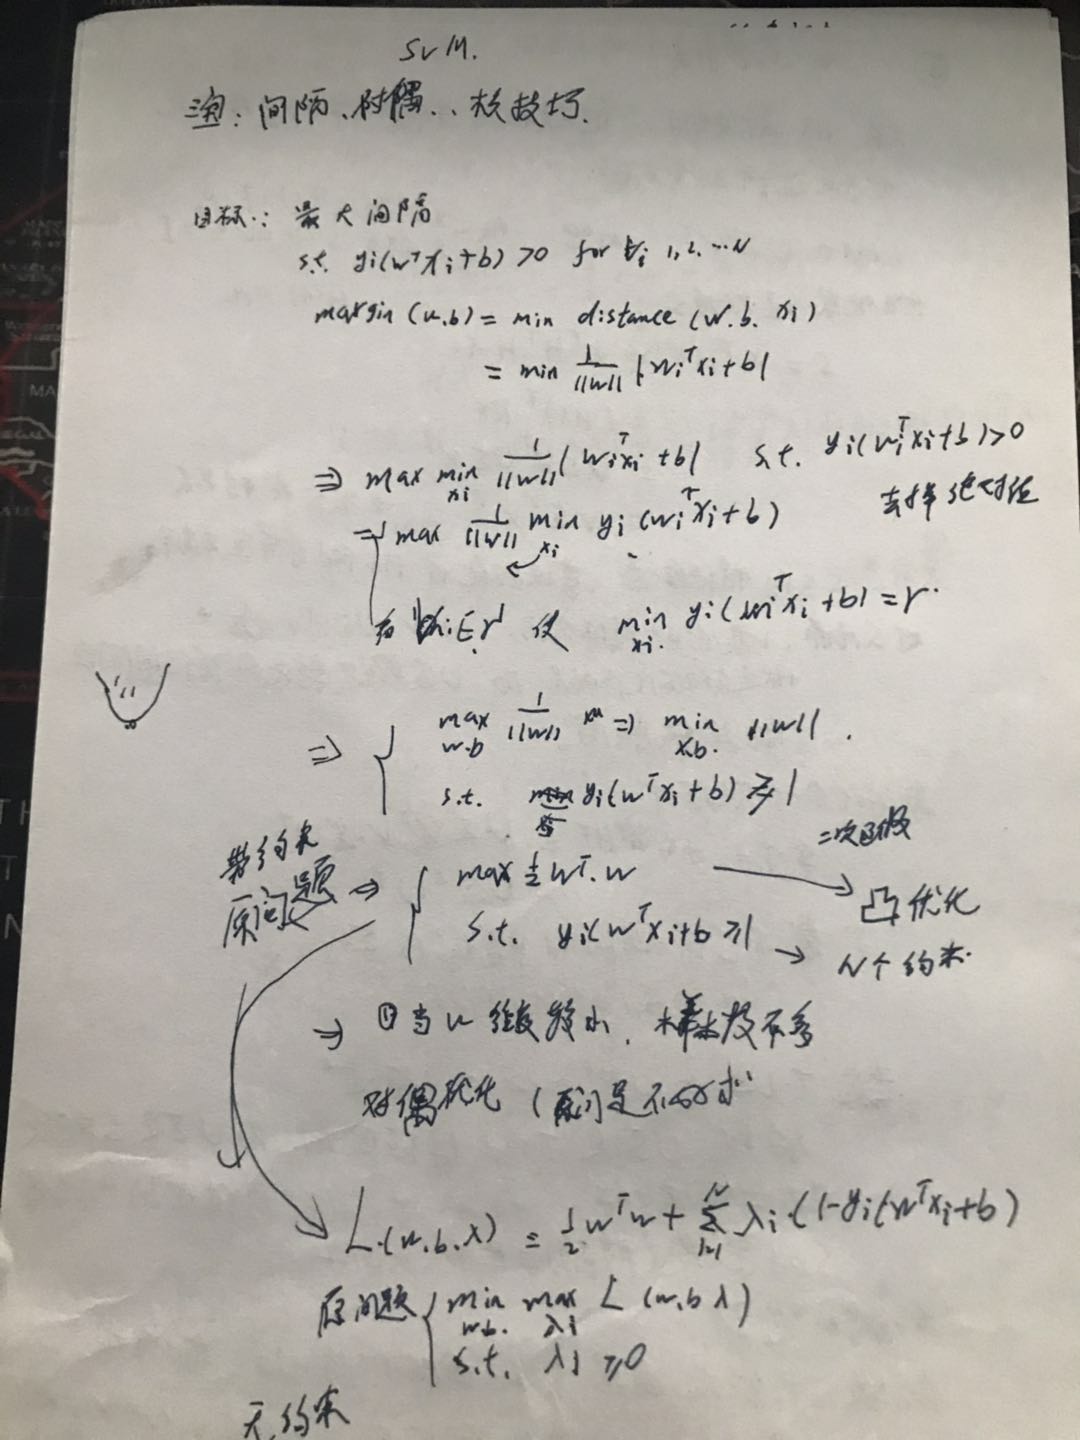 SVM.
三宝: 间隔、对偶、、核技巧.
目标.: 最大间隔
s.t. yi(wᵀxi+b) >0 for ∀i 1,2,...N
margin (w.b) = min distance (w.b. xi)
= min 1/||w|| |wiᵀxi+b|
⇒ max min xi 1/||w|| |wiᵀxi+b| s.t. yi(wiᵀxi+b)>0
去掉绝对值
⇒ max 1/||w|| min xi yi (wiᵀxi+b)
有 使 min xi. yi(wiᵀxi+b) = r.
⇒ { max w.b 1/||w|| ⇒ min x.b. ||w|| .
s.t. yi(wᵀxi+b) ≥ 1
带约束
原问题 ⇒ { max ½ wᵀ.w → 二次函数 凸优化
s.t. yi(wᵀxi+b ≥1 → N个约束.
→ ①当w维度较小、样本数不多
对偶优化 (原问是不好求
L.(w.b.λ) = ½ wᵀw + Σ i=1 N λi.(1-yi(wᵀxi+b)
原问题 { min w.b. max λi L (w,b λ)
s.t. λi ≥0
无约束